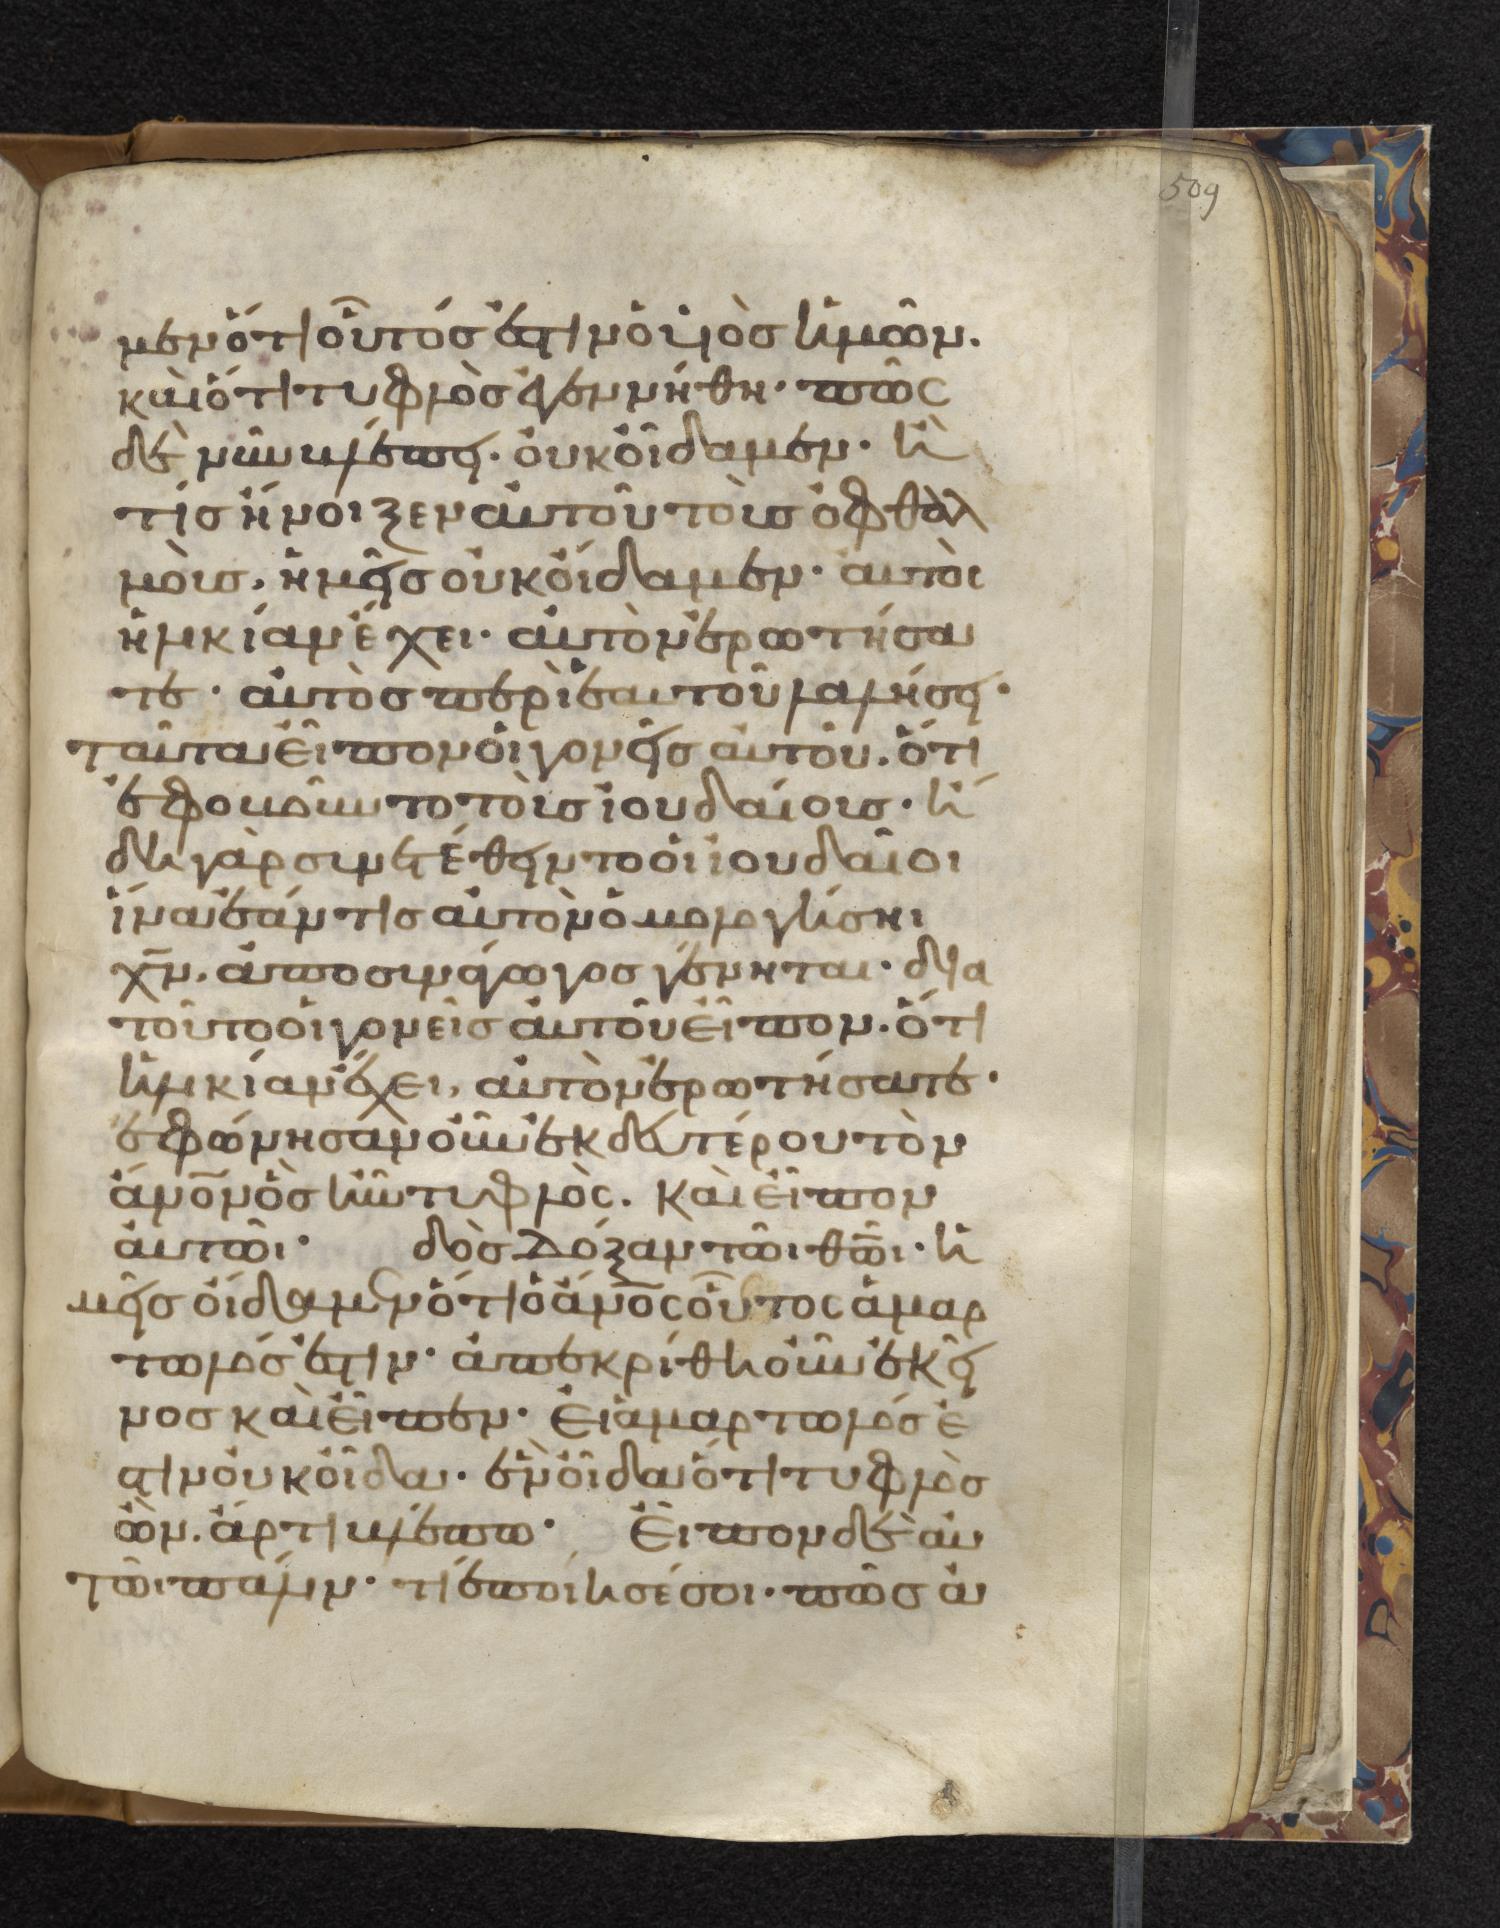 509
μεν ὅτι οὗτός ἐστιν ὁ υἱὸσ ἡμῶν.
καὶ ὅτι τυφλὸσ ἐγεννήθη· πῶς
δὲ νῦν βλέπει· οὐκ οἶδαμεν· ἢ
τίσ ἤνοιξεν αὐτοῦ τοὺσ ὀφθαλ
μοὺσ, ἡμεῖσ οὐκ οἴδαμεν· αὐτὸς
ἡλικίαν ἔχει· αὐτὸν ἐρωτήσα
τε· αὐτὸσ περὶ ἑαυτοῦ λαλήσει·
ταῦτα εἶπον οἱ γονεῖσ αὐτοῦ. ὅτι
ἐφοβοῦντο τοὺσ ἰουδαίουσ· ἤ
δη γὰρ συνετέθειντο οἱ ἰουδαῖοι
ἵνα ἐάν τισ αὐτὸν ὁμολογήσηι
χν̄, ἀποσυνάγωγοσ γένηται· δια
τοῦτο οἱ γονεῖσ αὐτοῦ εἶπον. ὅτι
ἡλικίαν ἔχει, αὐτὸν ἐρωτήσατε·
ἐφώνησαν οὖν ἐκ δευτέρου τὸν
ἄνο̄ν ὃσ ἦν τυφλὸς. καὶ εἶπον
αὐτῶι· δὸσ δόξαν τῶι θω̄ι· ἡ
μεῖσ οἴδαμεν ὅτι ὁ ἄνο̄ς οὗτος ἁμαρ
τωλός ἐστιν· ἀπεκρίθη οὖν ἐκεῖ
νοσ καὶ εἶπεν· εἰ ἁμαρτωλόσ ἐ
στιν οὐκ οἶδα· ἓν οἶδα ὅτι τυφλὸσ
ὢν. ἄρτι βλέπω· εἶπον δὲ αὐ
τῶι πάλιν· τί ἐποίησέ σοι· πῶσ ἀ